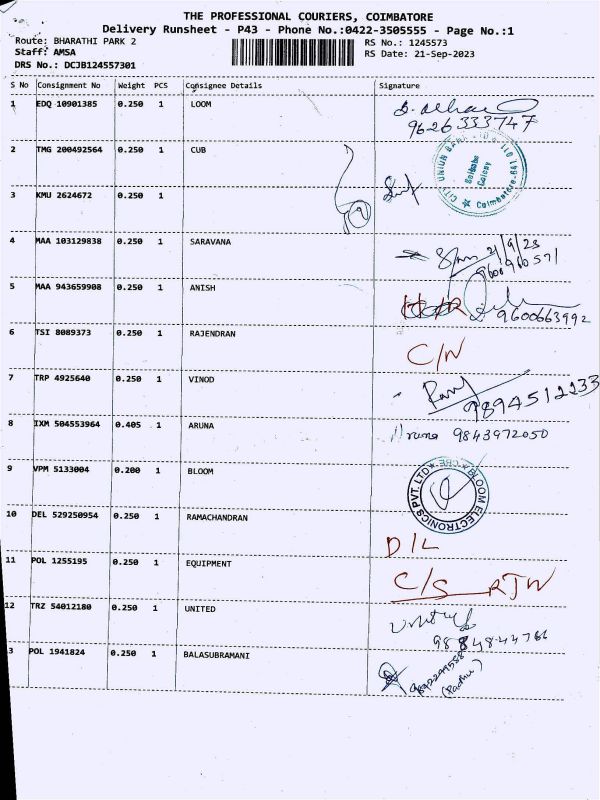 THE PROFESSIONAL COURIERS, COIMBATORE
Delivery Runsheet - P43 - Phone No.:0422-3505555 - Page No.:1
Route: BHARATHI PARK 2
RS No.: 1245573
Staff: AMSA
RS Date: 21-Sep-2023
DRS No.: DCJB124557301
S No Consignment No Weight PCS Consignee Details Signature
1 EDQ 10901385 0.250 1 LOOM
9626333747
2 TMG 200492564 0.250 1 CUB
CITY UNION BANK LTD
Saibaba
Colony
Coimbatore-641
3 KMU 2624672 0.250 1
4 MAA 103129838 0.250 1 SARAVANA
21/9/23
5 MAA 943659908 0.250 1 ANISH
9600663992
6 TSI 8089373 0.250 1 RAJENDRAN
C/N
7 TRP 4925640 0.250 1 VINOD
9894512233
8 IXM 504553964 0.405 1 ARUNA Aruna 9843972050
9 VPM 5133004 0.200 1 BLOOM
BLOOM ELECTRONICS PVT. LTD ★ CBE ★
10 DEL 529250954 0.250 1 RAMACHANDRAN
D/L
11 POL 1255195 0.250 1 EQUIPMENT
C/S RTN
12 TRZ 54012180 0.250 1 UNITED
9884844766
3 POL 1941824 0.250 1 BALASUBRAMANI